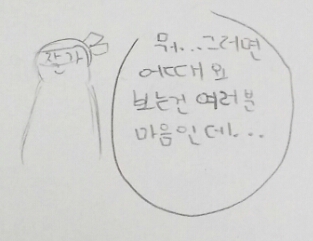 작가
뭐...그러면
어때요
보는건 여러분
마음인데...